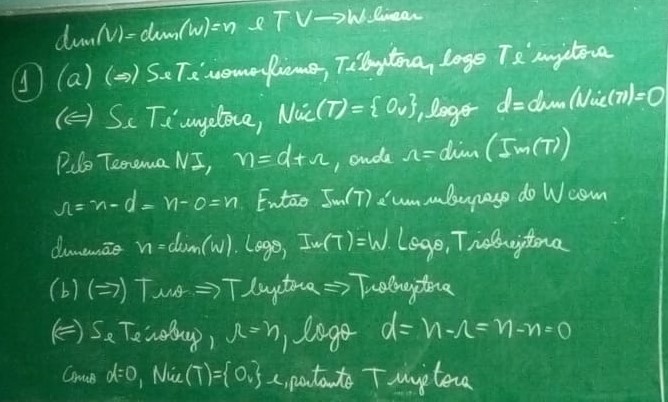 dim(V)=dim(W)=n e T V→W linear
① (a) (⇒) Se T é isomorfismo, T é bijetora, logo T é injetora
(⇐) Se T é injetora, Núc(T)={0v}, logo d=dim(Núc(T))=0
Pelo Teorema NI, n=d+r, onde r=dim(Im(T))
r=n-d=n-0=n. Então Im(T) é um subespaço de W com
dimensão n=dim(W). Logo, Im(T)=W. Logo, T sobrejetora
(b) (⇒) T iso ⇒ T bijetora ⇒ T sobrejetora
(⇐) Se T é sobrej, r=n, logo d=n-r=n-n=0
Como d=0, Núc(T)={0v} e, portanto T injetora